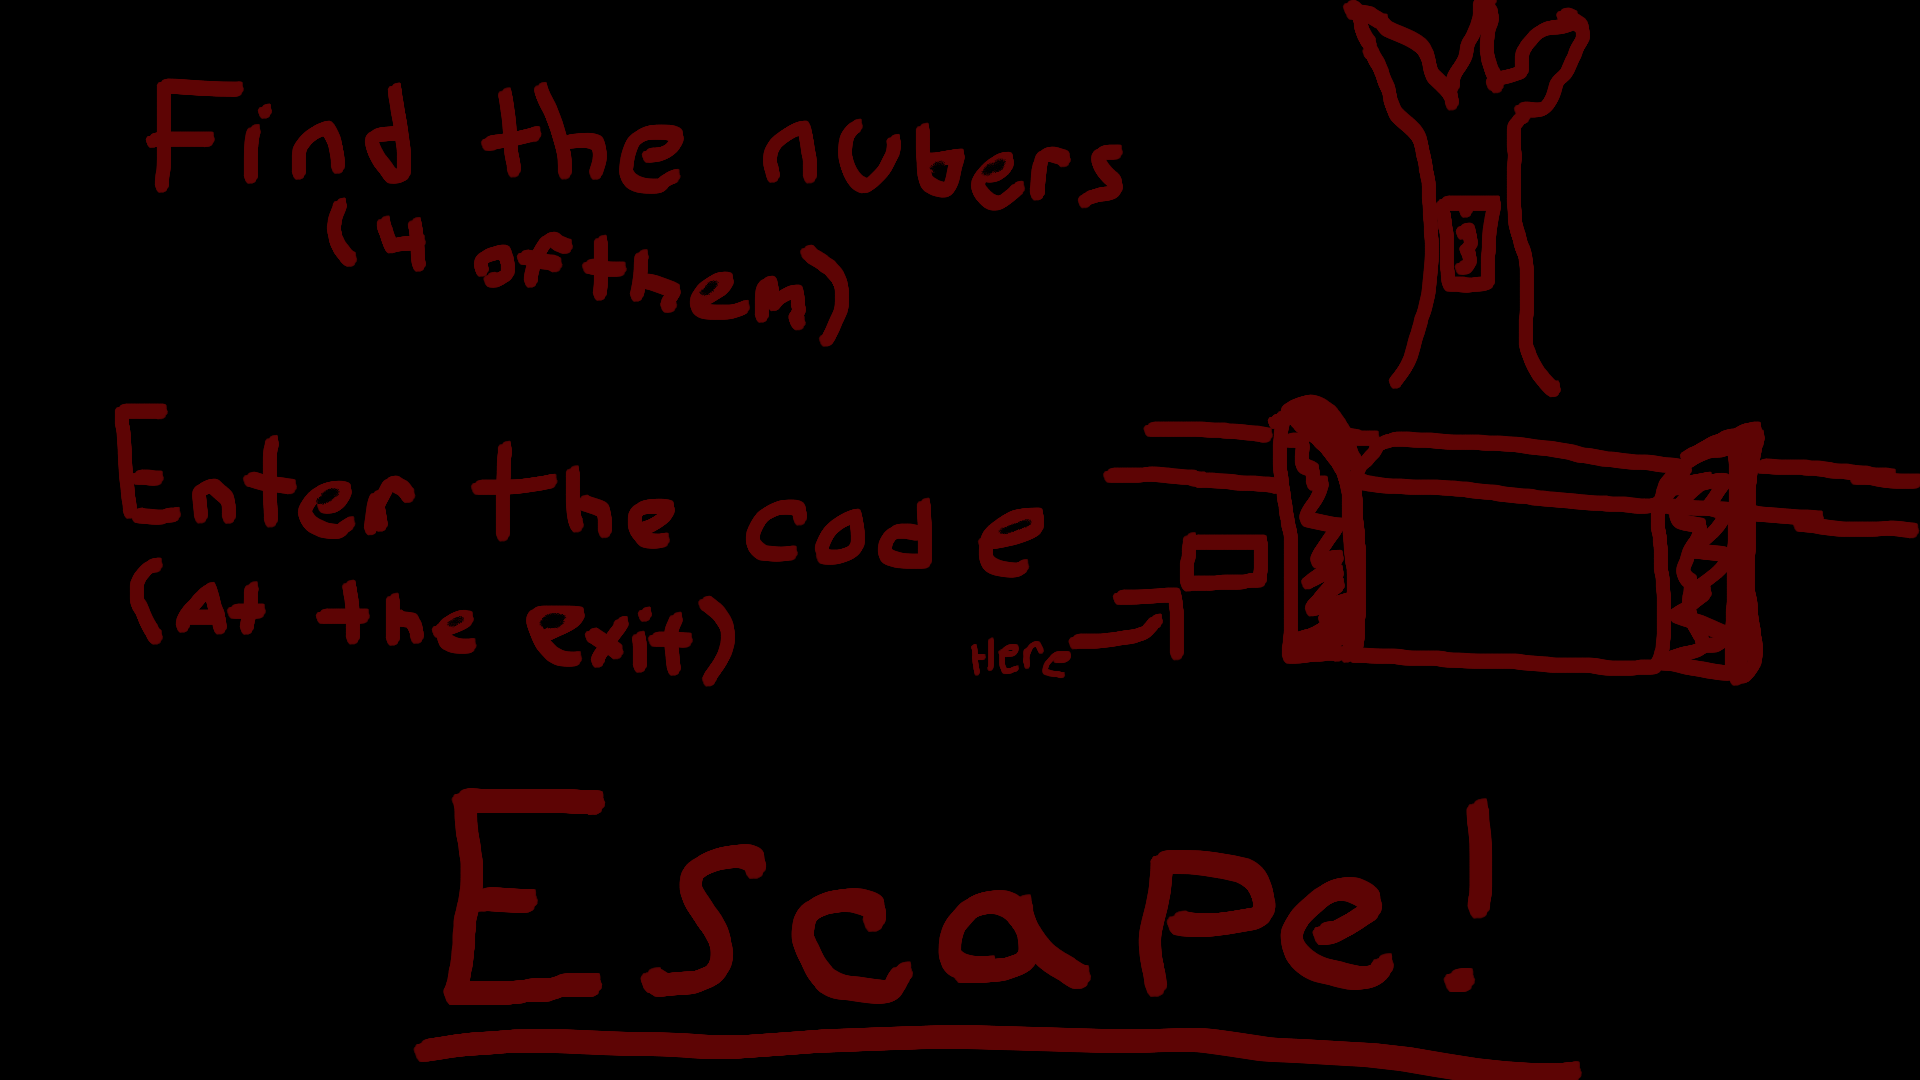 Find the nubers
(4 of them)
Enter the code
(At the exit)
Here
Escape!